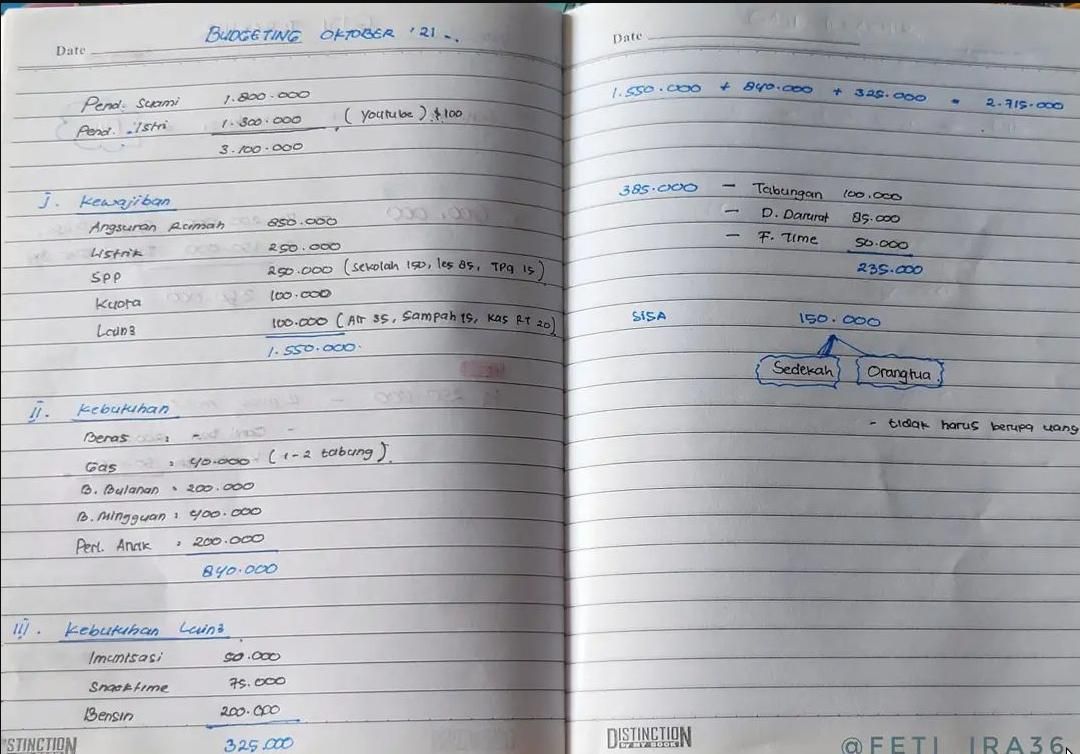 BUDGETING OKTOBER '21 -.
Date
Pend. Suami 1.800.000
Pend. Istri 1.300.000 (Youtube) $100
3.100.000
I. Kewajiban
Angsuran Rumah 850.000
Listrik 250.000
SPP 250.000 (Sekolah 150, les 85, TPQ 15)
Kuota 100.000
Lain2 100.000 (Air 35, Sampah 15, Kas RT 20)
1.550.000
II. Kebutuhan
Beras : -
Gas : 40.000 (1-2 tabung)
B. Bulanan : 200.000
B. Mingguan : 400.000
Perl. Anak : 200.000
840.000
III. Kebutuhan Lain2
Imunisasi 50.000
Snacktime 75.000
Bensin 200.000
325.000
STINCTION
Date
1.550.000 + 840.000 + 325.000 = 2.715.000
385.000 - Tabungan 100.000
- D. Darurat 85.000
- F. Time 50.000
235.000
SISA 150.000
Sedekah Orangtua
- tidak harus berupa uang
DISTINCTION
BY MY BOOK
@FETI_IRA36